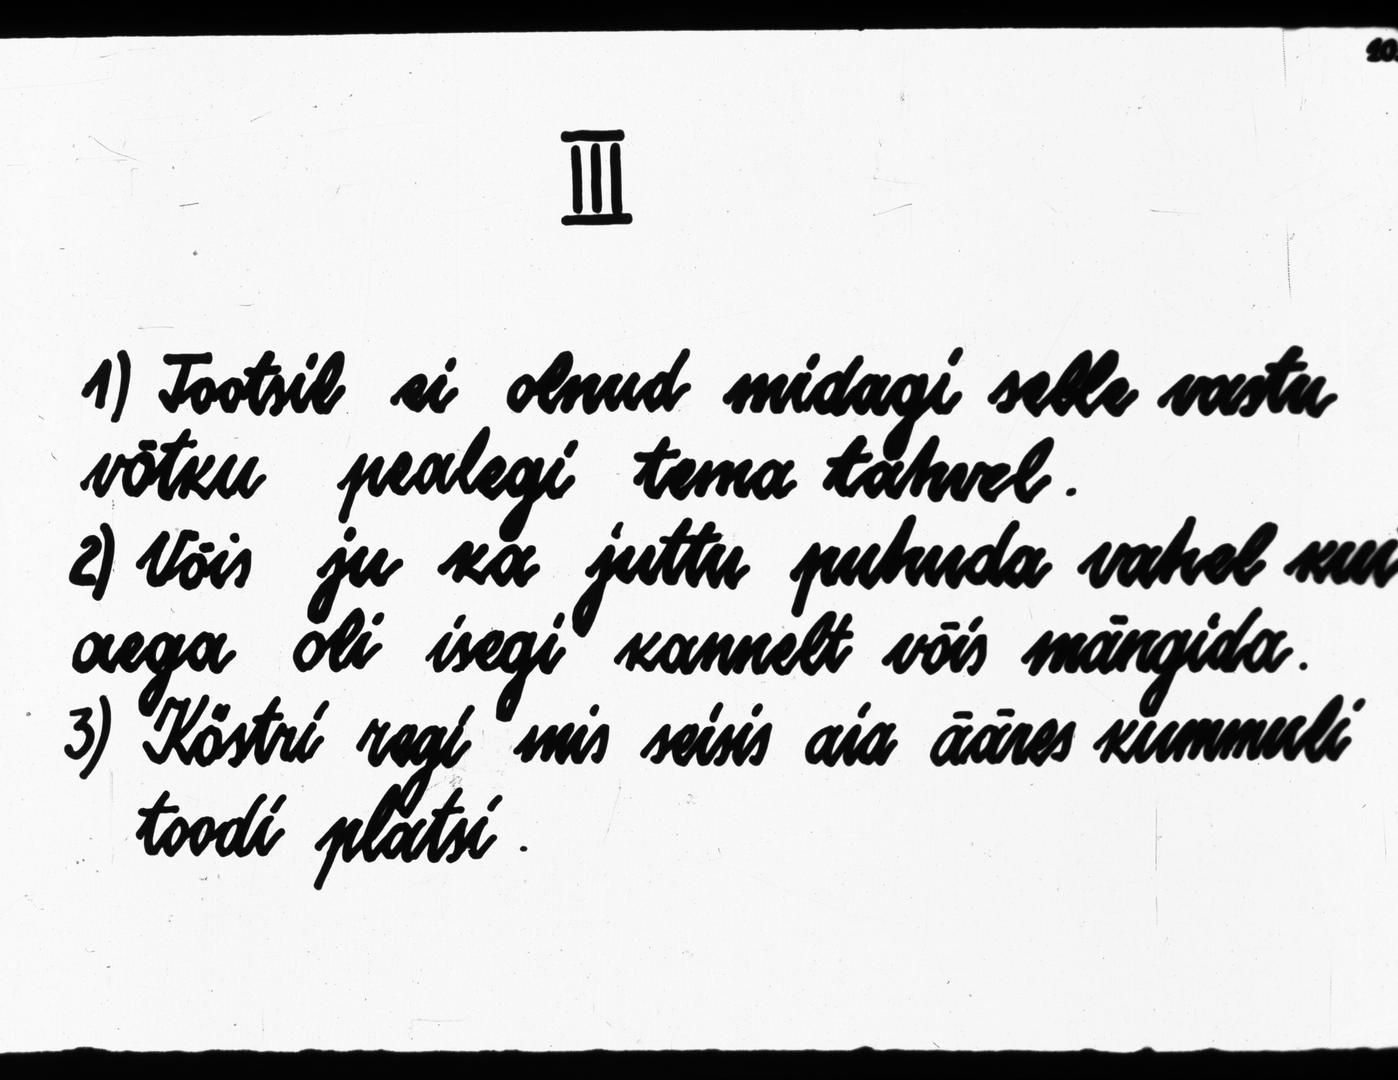 III
1) Tootsil ei olnud midagi selle vastu
võtku pealegi tema tahvel.
2) Võis ju ka juttu puhuda vahel kui
aega oli isegi kannelt võis mängida.
3) Köstri regi mis seisis aia ääres kummuli
toodi platsi.